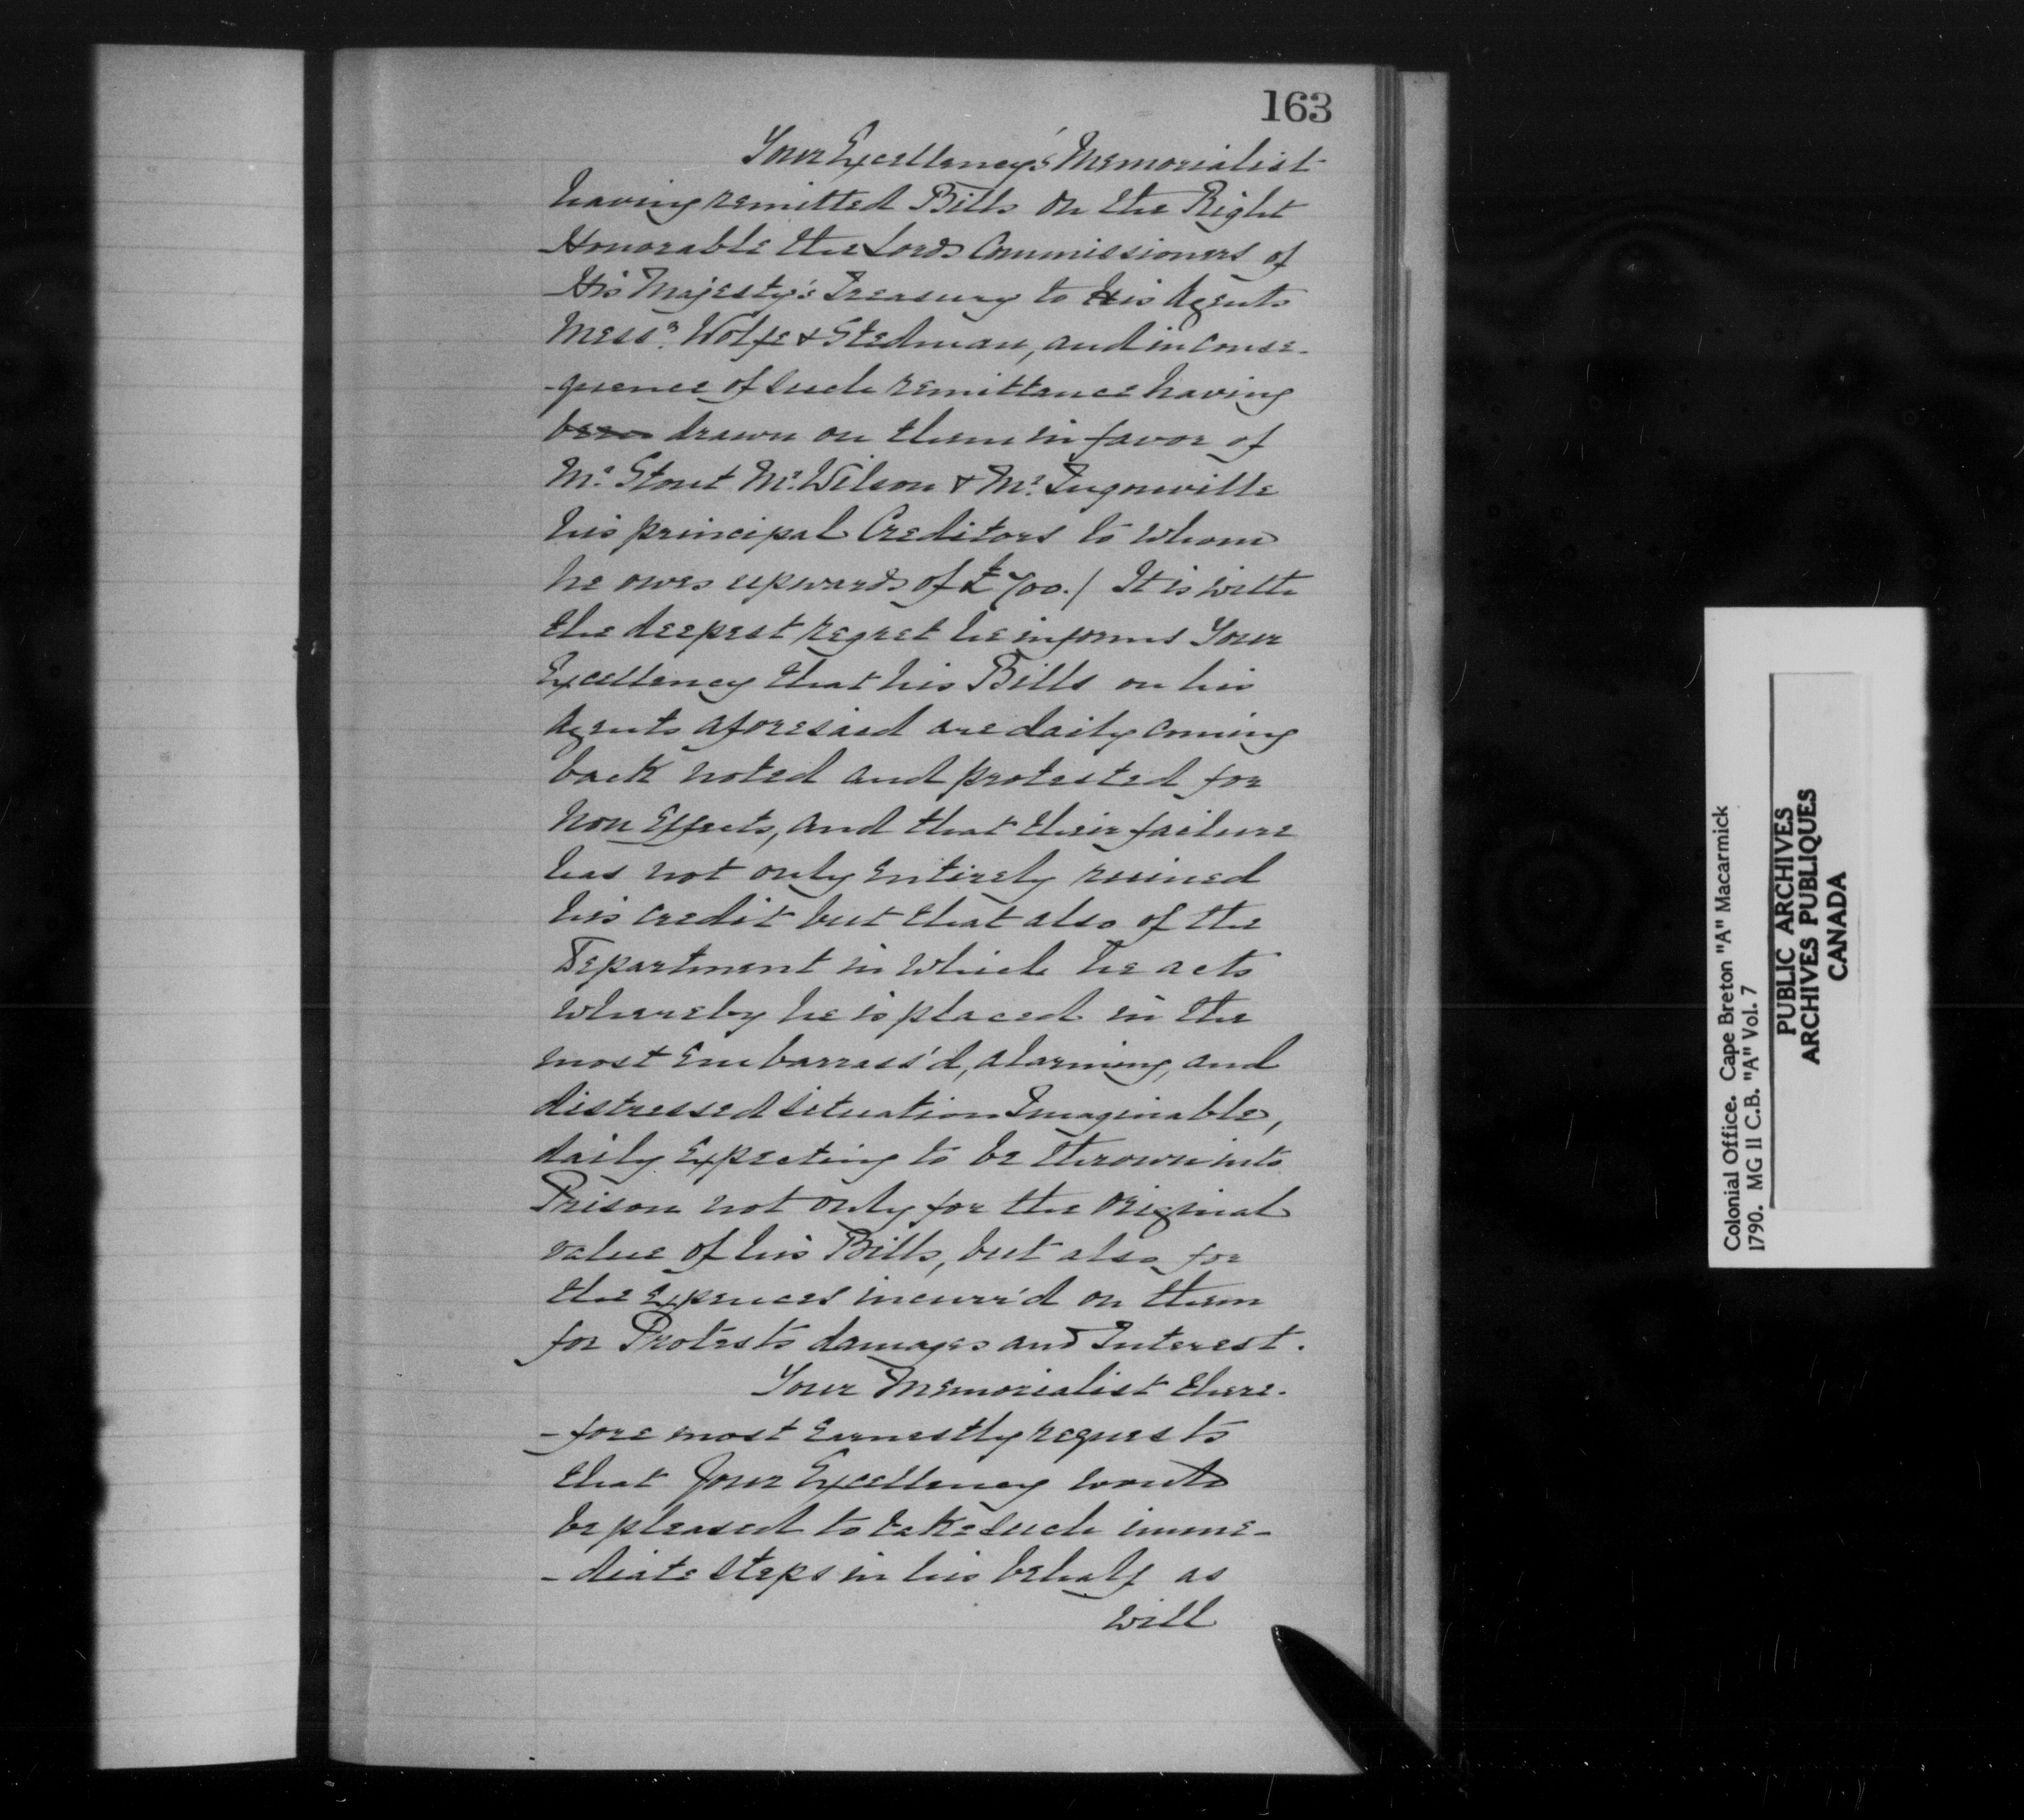 163
Your Excellency's Memorialist
having remitted Bills on the Right
Honorable the Lords Commissioners of
His Majesty's Treasury to His Agents
Mess.rs Wolfe & Stedman, and in conse-
-quence of such remittance having
been drawn on them in favor of
Mr. Stout Mr. Wilson & Mr. Ingouville
his principal Creditors to whom
he owes upwards of £700./ It is with
the deepest regret he informs Your
Excellency that his Bills on his
Agents aforesaid are daily coming
back noted and protested for
Non Effects, and that their failure
has not only entirely ruined
his credit but that also of the
Department in which he acts
whereby he is placed in the
most embarrass'd, alarming, and
distressed situation Imaginable,
daily Expecting to be thrown into
Prison not only for the original
value of his Bills, but also for
the Expences incurr'd on them
for Protests damages and Interest.
Your Memorialist there-
-fore most earnestly requests
that Your Excellency would
be pleased to take such imme-
-diate steps in his behalf as
will
Colonial Office. Cape Breton "A" Macarmick
1790. MG 11 C.B. "A" Vol. 7
PUBLIC ARCHIVES
ARCHIVES PUBLIQUES
CANADA